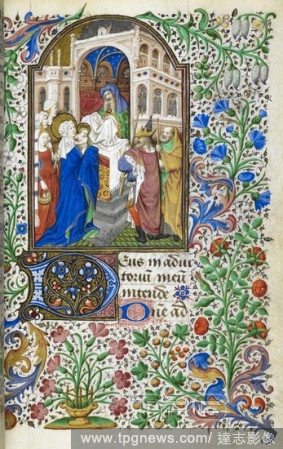 Deus in adiuto
torium meu
intende
Dne ad
www.tpgnews.com/ 達志影像